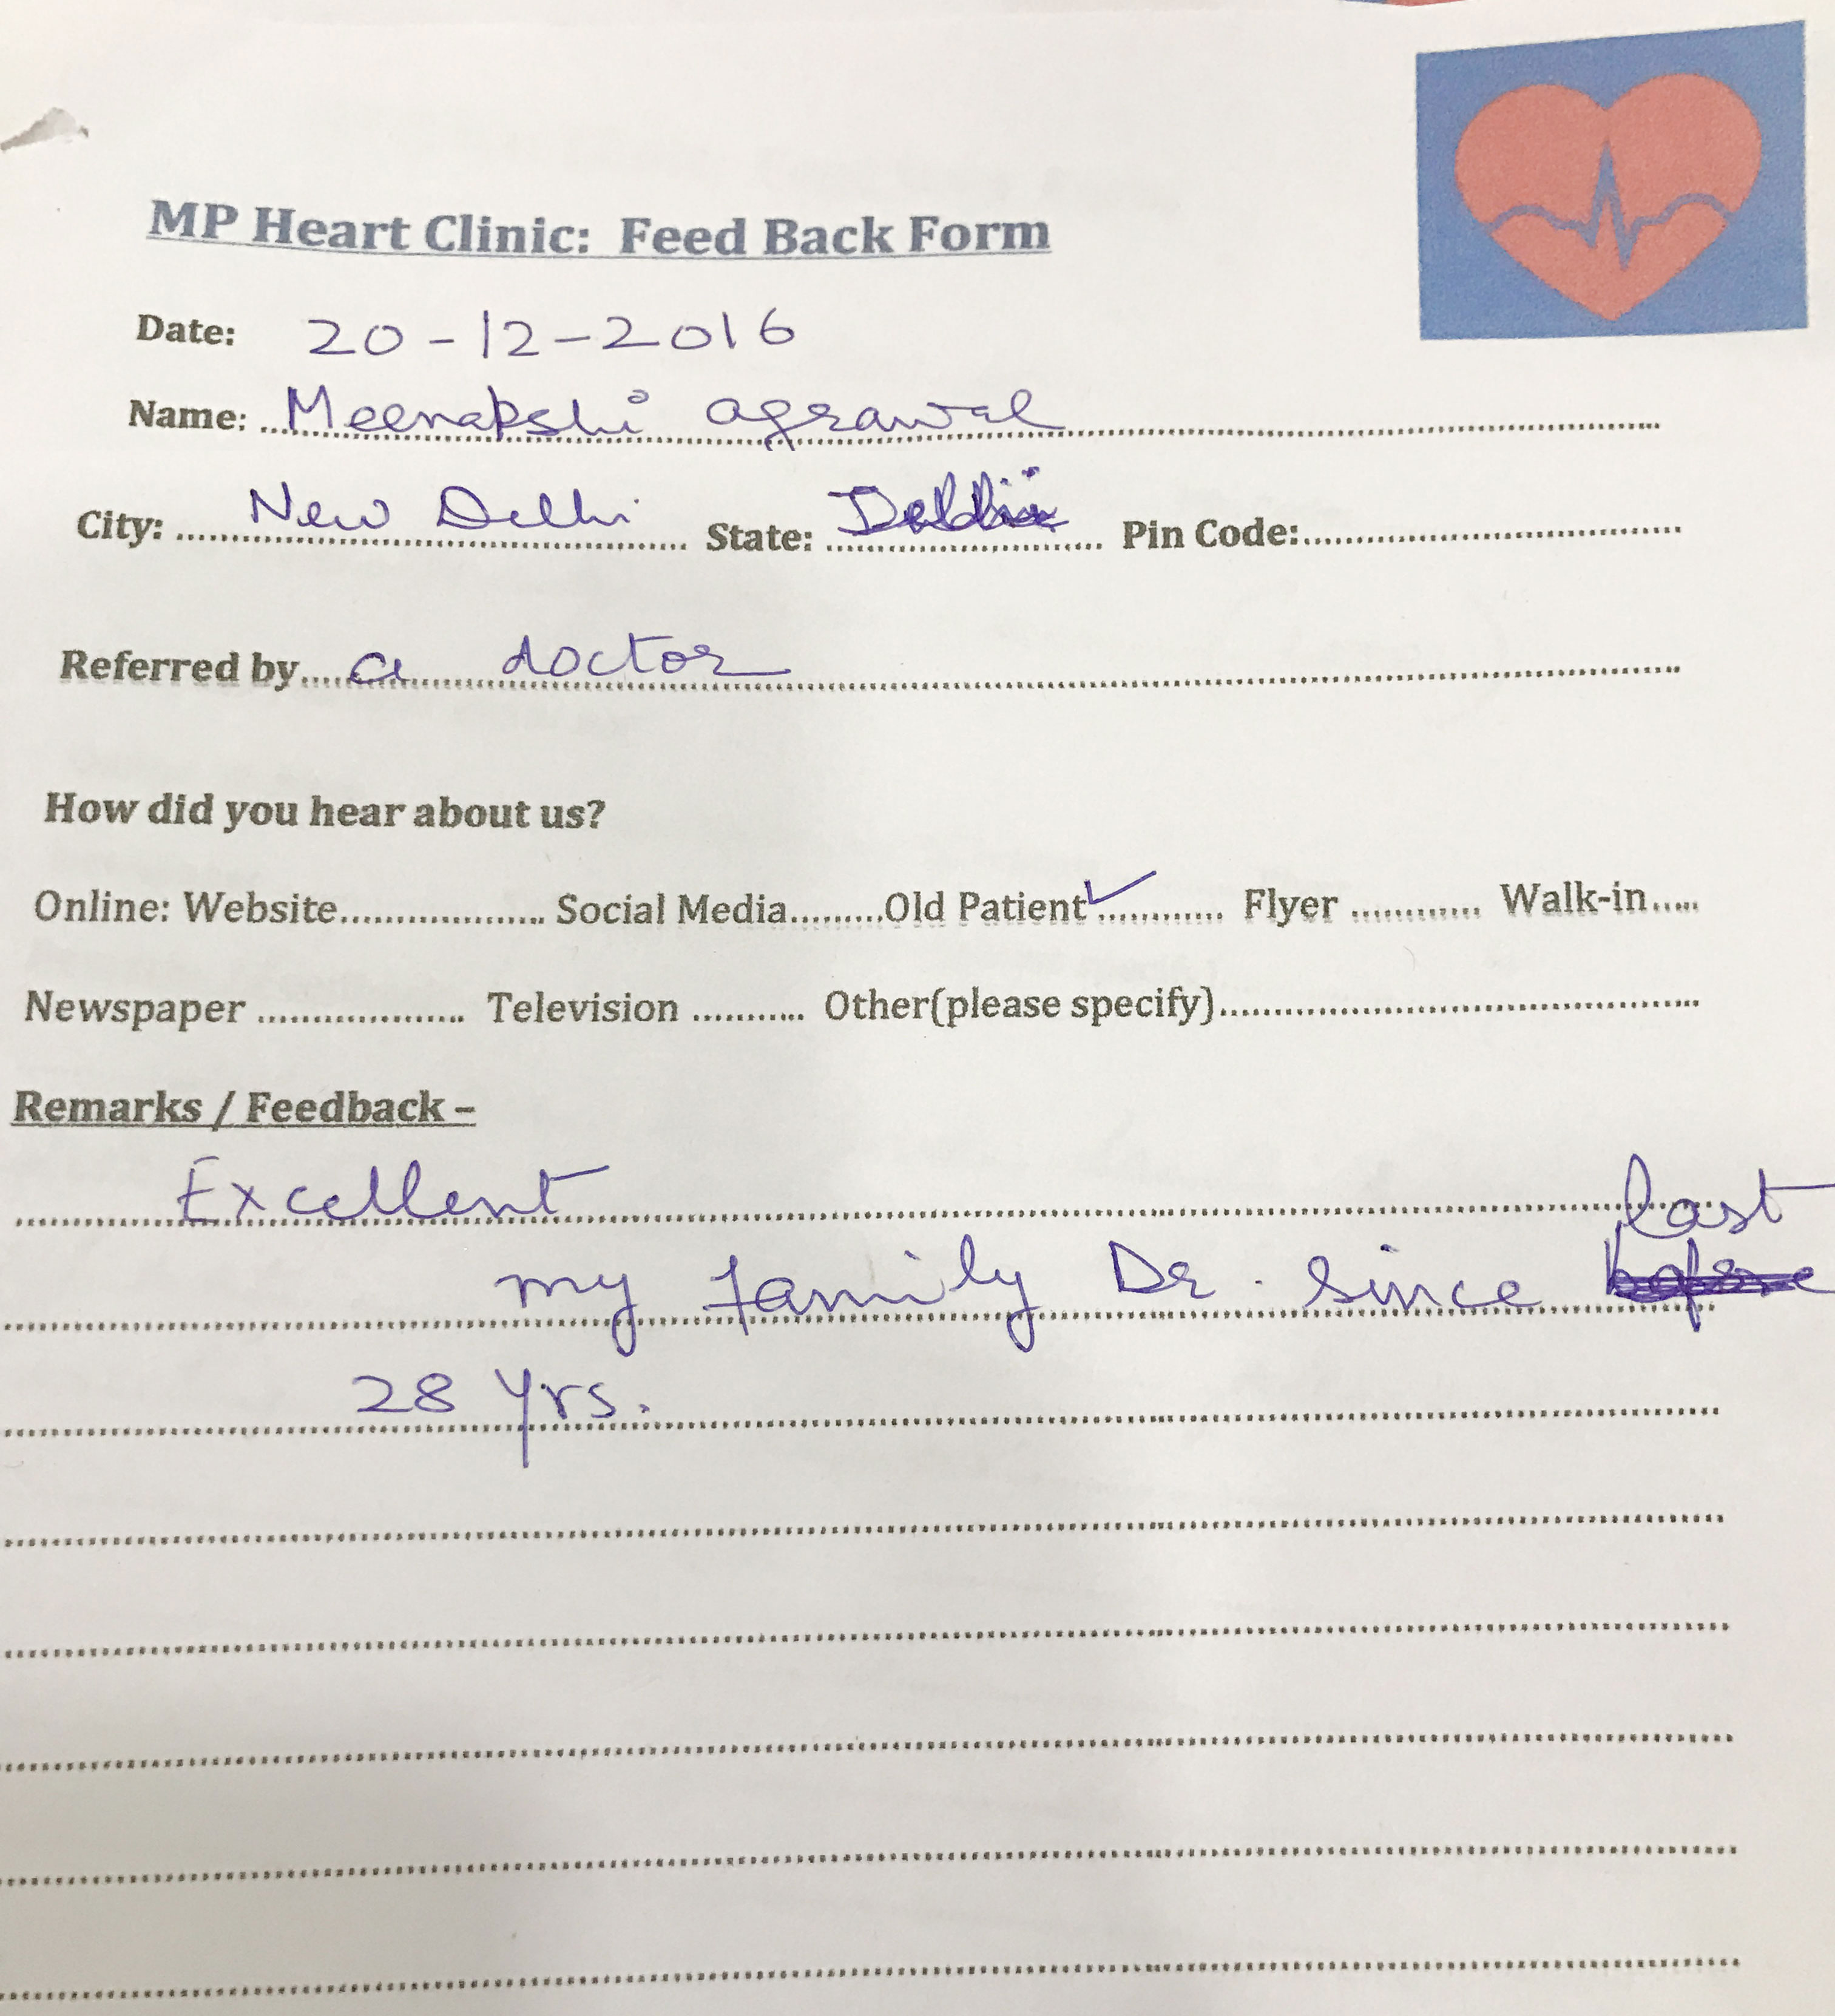 MP Heart Clinic: Feed Back Form
Date: 20-12-2016
Name: Meenakshi agrawal
City: New Delhi State: Delhi Pin Code:
Referred by a doctor
How did you hear about us?
Online: Website Social Media Old Patient ✓ Flyer Walk-in
Newspaper Television Other(please specify)
Remarks / Feedback –
Excellent last
my family Dr. since
28 Yrs.